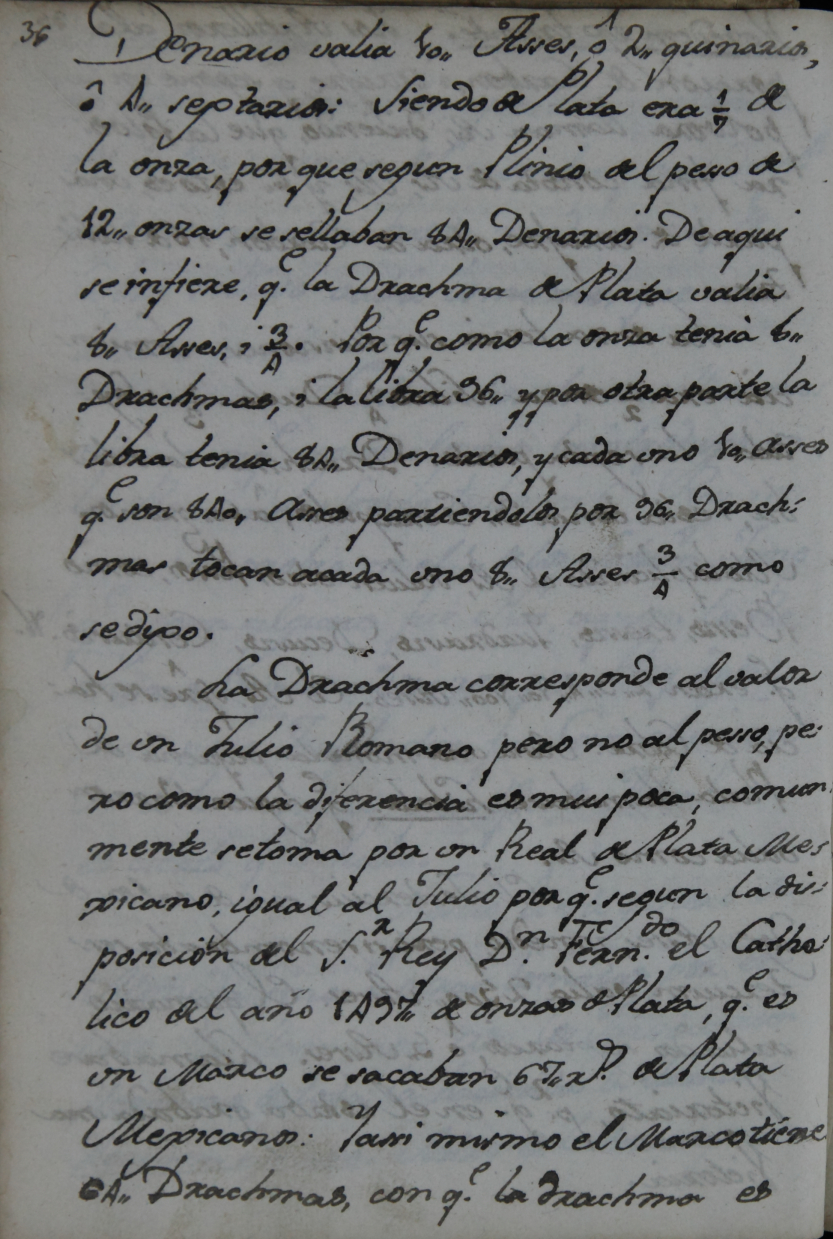 36
Denario valia 10,, Asses, ô 2,, quinarios,
ô 4,, septarios: Siendo de Plata era 1/7 de
la onza, por que segun Plinio del pesso de
12,, onzas se sellaban 84,, Denarios. De aqui
se infiere, q.e la Drachma de Plata valia
8,, Asses, i 3/4. Por q.e como la onza tenia 8,,
Drachmas, i la libra 96,, y por otra parte la
libra tenia 84,, Denarios, y cada uno 10,, asses
q.e son 840,, Asses partiendolos por 96,, Drach:
mas tocan acada uno 8,, Asses 3/4 como
se dixo.
La Drachma corresponde al valor
de un Julio Romano pero no al pesso, pe:
ro como la diferencia es mui poca, comun:
mente se toma por un Real de Plata Me:
xicano, igual al Julio por q.e segun la dis:
posicion del S.r Rey D.n Fern.do el Catho
lico del año 1497,, de onzas de Plata, q.e es
un Marco se sacaban 67,, r.s de Plata
Mexicanos: Y assi mismo el Marco tiene
64,, Drachmas, con q.e la drachma es